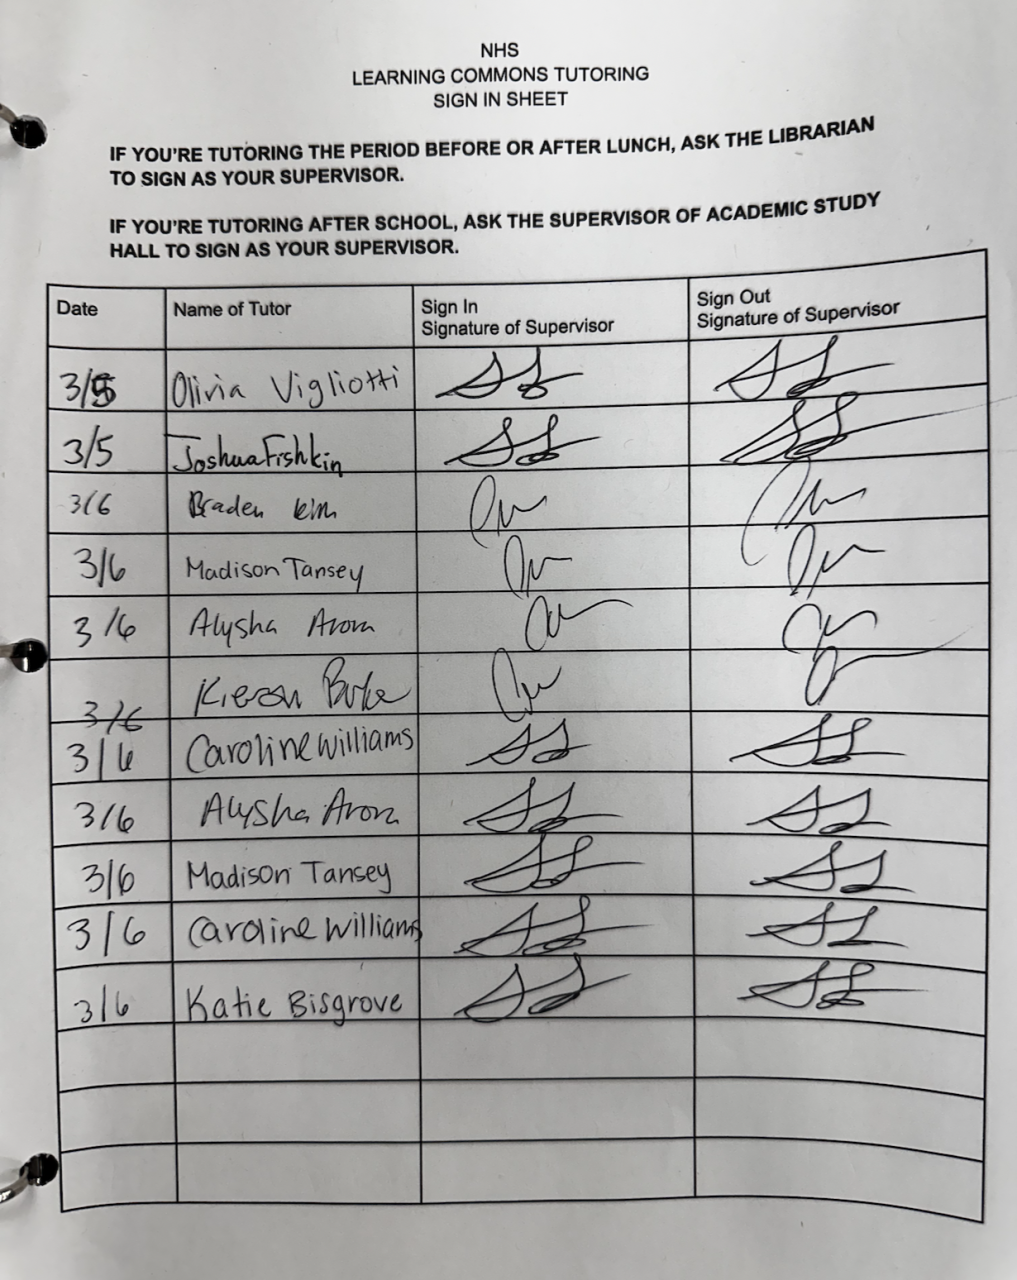 NHS
LEARNING COMMONS TUTORING
SIGN IN SHEET
IF YOU'RE TUTORING THE PERIOD BEFORE OR AFTER LUNCH, ASK THE LIBRARIAN
TO SIGN AS YOUR SUPERVISOR.
IF YOU'RE TUTORING AFTER SCHOOL, ASK THE SUPERVISOR OF ACADEMIC STUDY
HALL TO SIGN AS YOUR SUPERVISOR.
Date Name of Tutor Sign In Sign Out
Signature of Supervisor Signature of Supervisor
3/5 Olivia Vigliotti
3/5 Joshua Fishkin
3/6 Braden Kim
3/6 Madison Tansey
3/6 Alysha Arora
3/6 Kieran
3/6 Caroline Williams
3/6 Alysha Arora
3/6 Madison Tansey
3/6 Caroline Williams
3/6 Katie Bisgrove